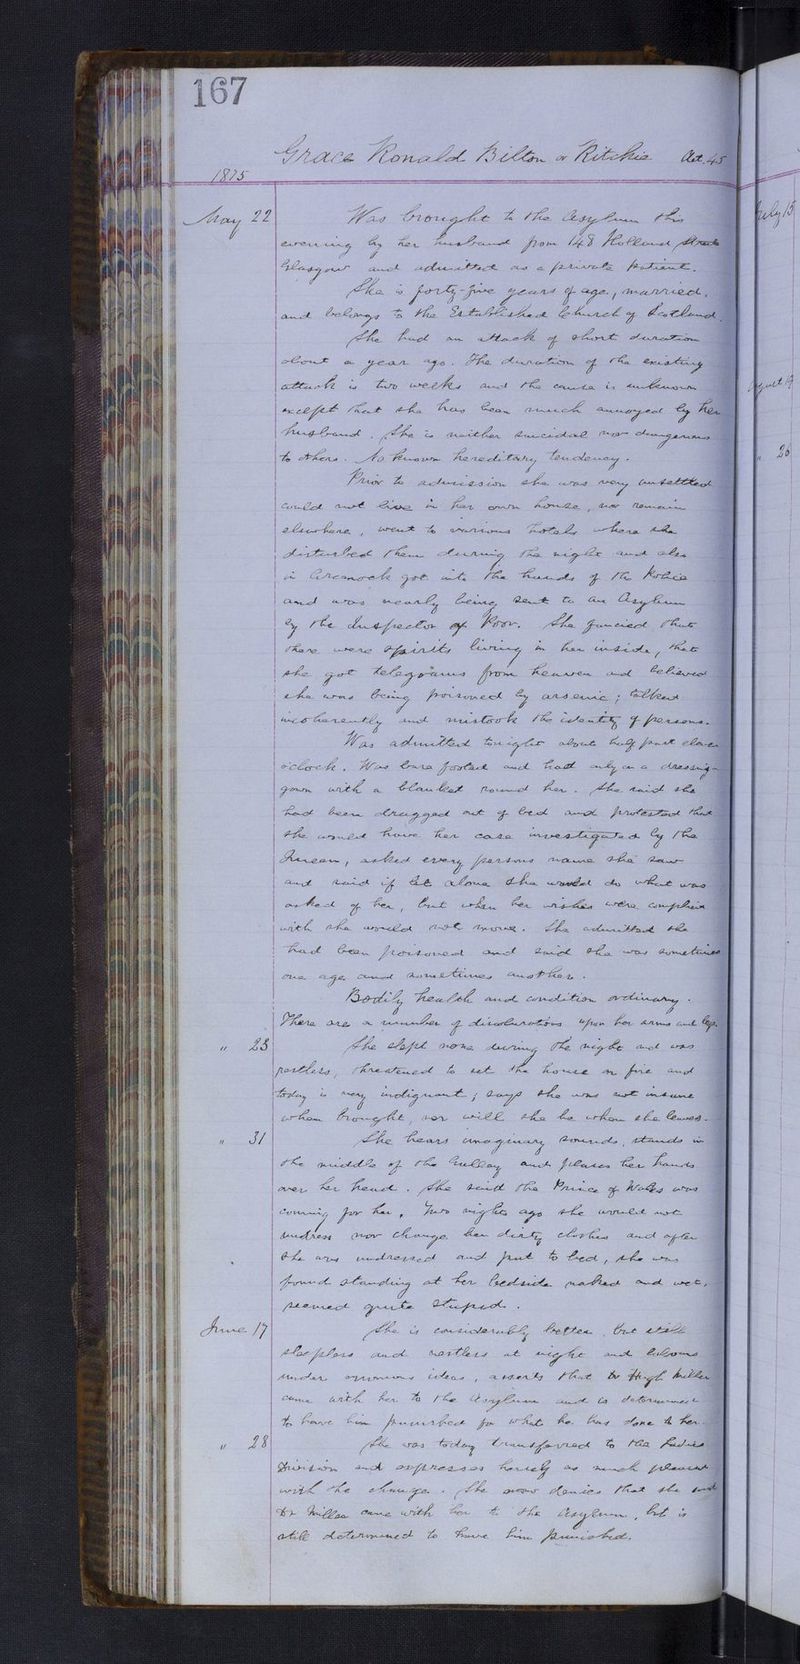 167
Grace Ronald Bilton or Ritchie Aet. 45
1875
May 22 Was brought to the Asylum this
evening by her husband from 148 Holland Street
Glasgow and admitted as a private patient.
She is forty-five years of age, married,
and belongs to the Established Church of Scotland.
She had an attack of short duration
about a year ago. The duration of the existing
attack is two weeks and the cause is unknown
except that she has been much annoyed by her
husband. She is neither suicidal nor dangerous
to others. No known hereditary tendency.
Prior to admission she was very unsettled
could not live in her own house, nor remain
elsewhere, went to various hotels where she
disturbed them during the night and also
in Greenock got into the hands of the Police
and was nearly being sent to an Asylum
by the Inspector of Poor. She fancied that
there were spirits living in her inside, that
she got telegrams from heaven and believed
she was being poisoned by arsenic; talked
incoherently and mistook the identity of persons.
Was admitted tonight about half past eleven
o'clock. Was bare footed and had only on a dressing-
gown with a blanket round her. She said she
had been dragged out of bed and protested that
she would have her case investigated by the
Queen, asked every persons name she saw
and said if let alone she would do what was
asked of her, but when her wishes were complied
with she would not move. She admitted she
had been poisoned and said she was sometimes
one age and sometimes another.
Bodily health and condition ordinary.
There are a number of discolorations upon her arms and legs.
" 23 She slept none during the night and was
restless, threatened to set the house on fire and
today is very indignant; says she was not insane
when brought, nor will she be when she leaves.
" 31 She hears imaginary sounds, stands in
the middle of the Gallery and places her hands
over her head. She said the Prince of Wales was
coming for her. Two nights ago she would not
undress nor change her dirty clothes and after
she was undressed and put to bed, she was
found standing at her bedside naked and wet,
seemed quite stupid.
June 17 She is considerably better, but still
sleepless and restless at night and labours
under erroneous ideas, asserts that Dr Hugh Miller
came with her to the Asylum and is determined
to have him punished for what he has done to her.
" 28 She was today transferred to the Ladies
Division and expresses herself as much pleased
with the change. She now denies that she said
Dr Miller came with her to the Asylum, but is
still determined to have him punished.
July 15
August 19
" 26